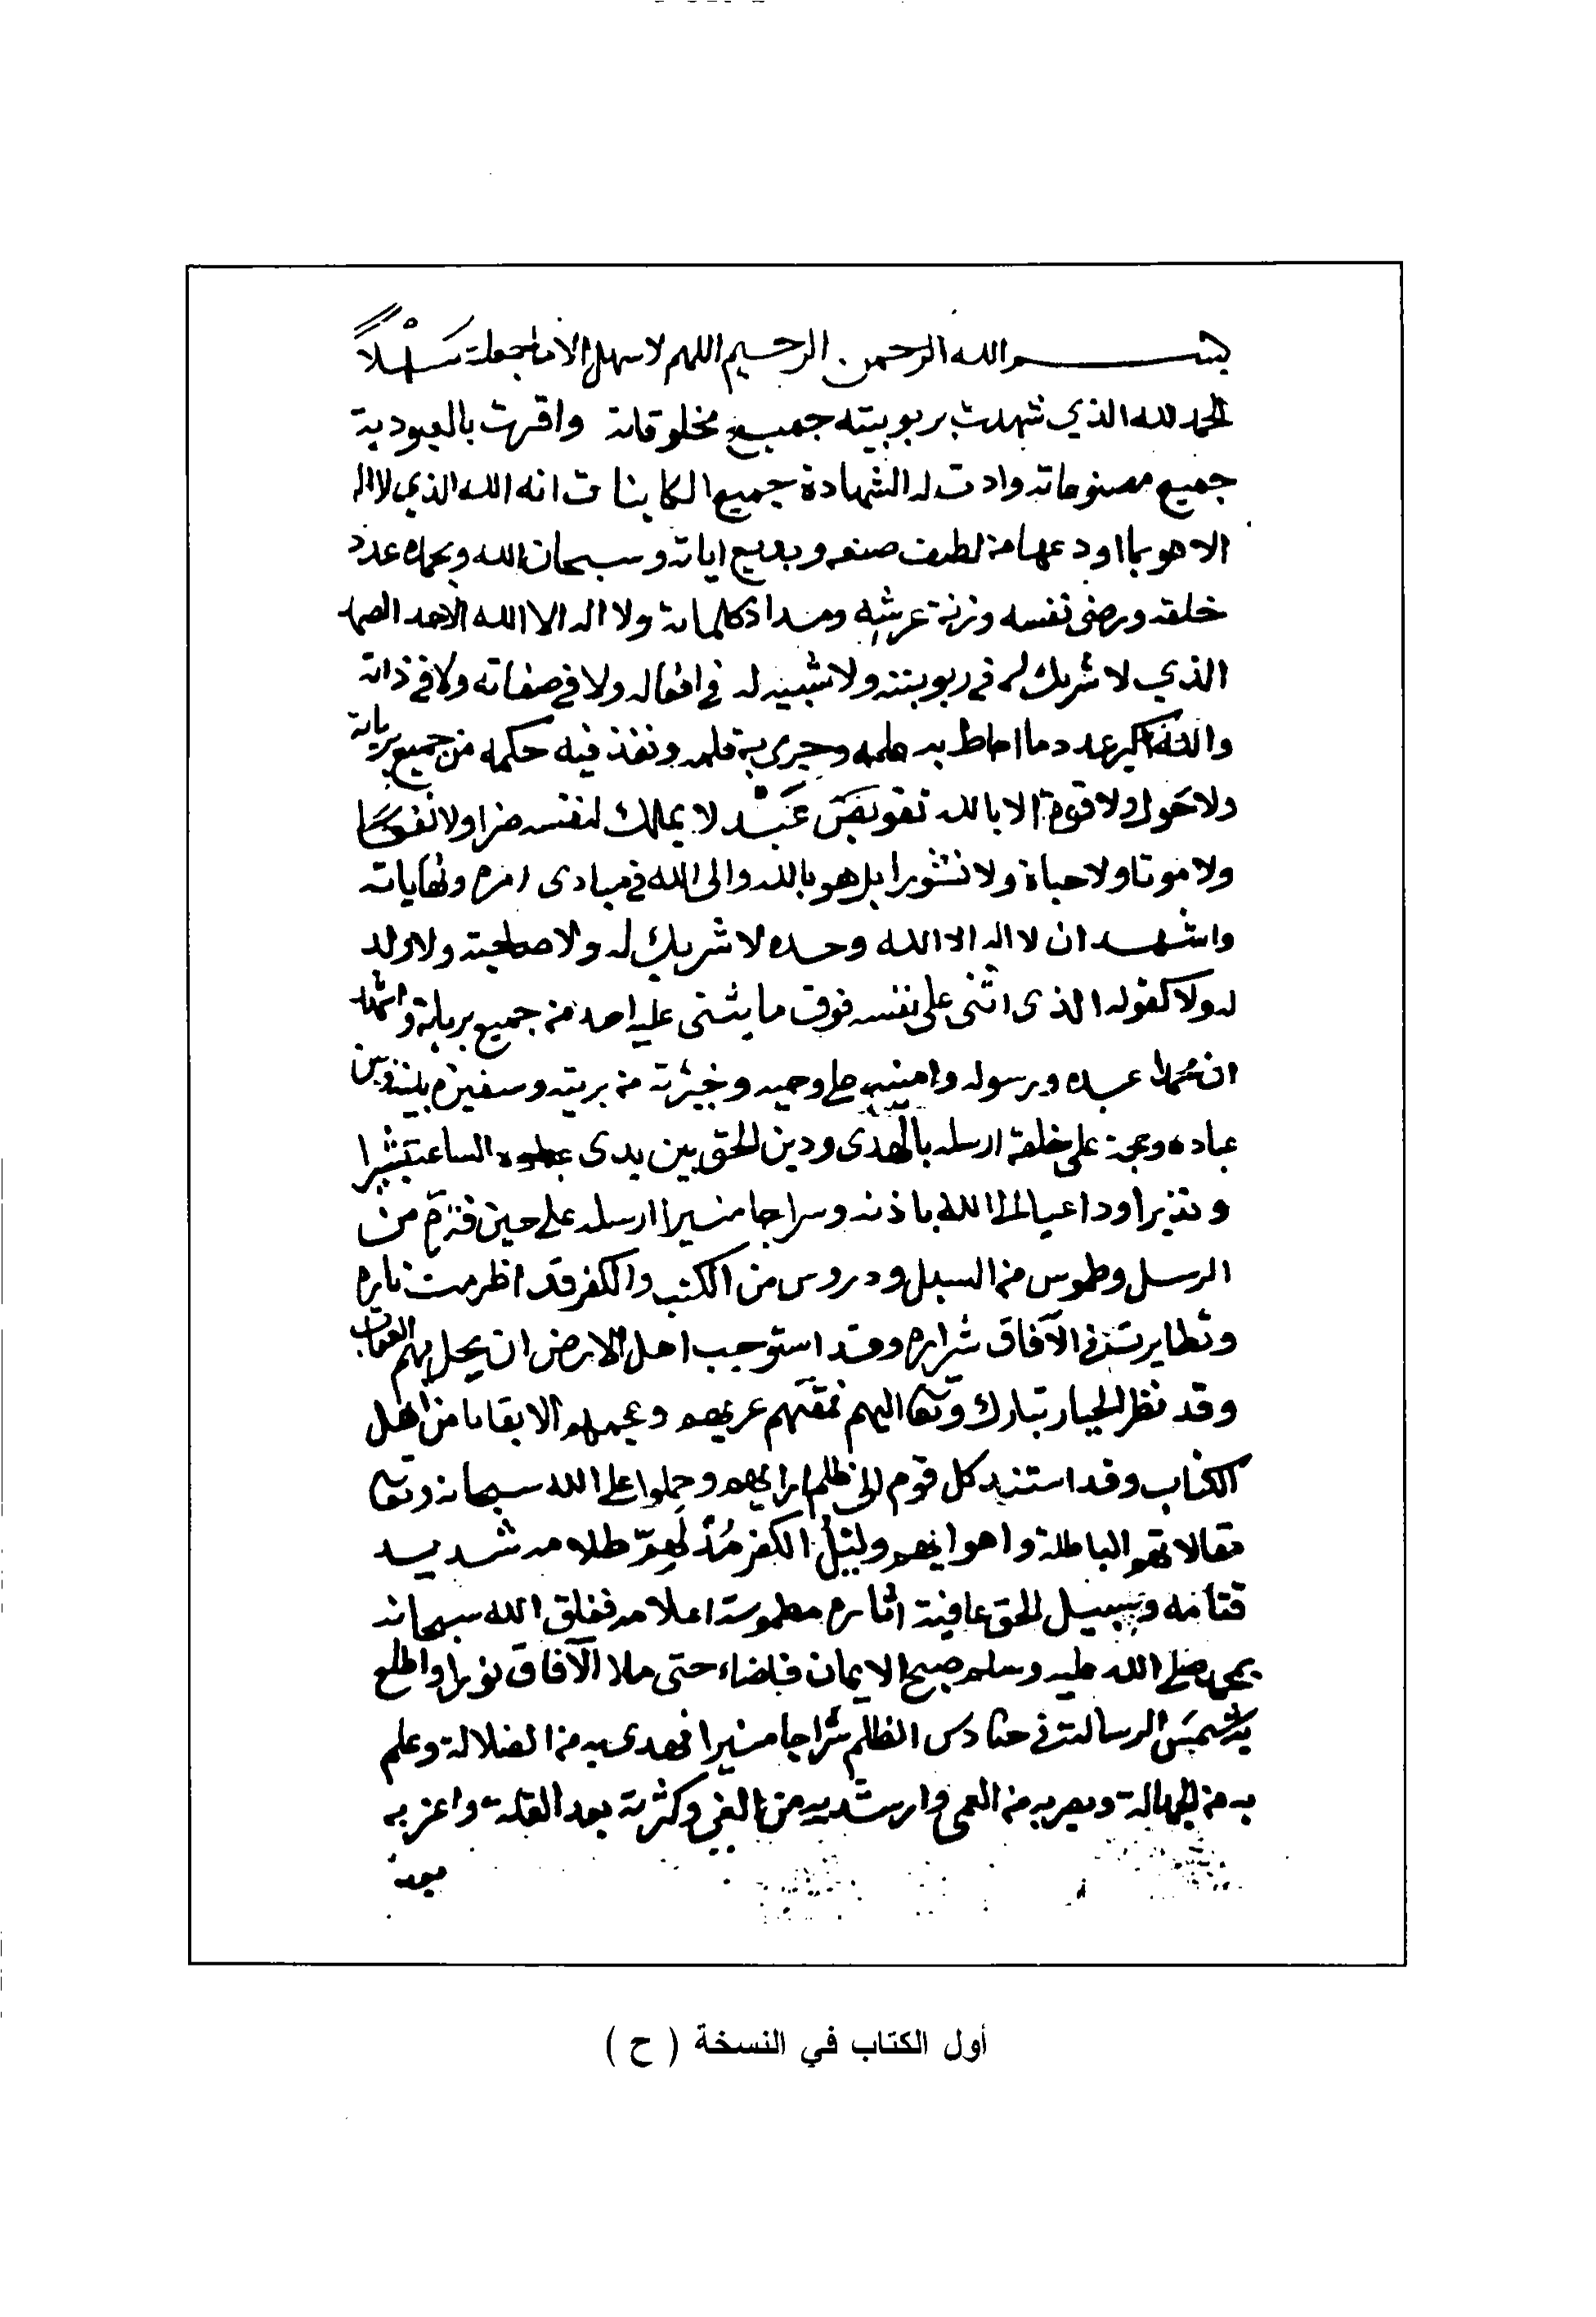 بسم الله الرحمن الرحيم اللهم لا سهل الا ما جعلته سهلاً
الحمد لله الذي شهدت بربوبيته جميع مخلوقاته واقرت بالعبودية
جميع مصنوعاته وادت له الشهادة جميع الكاينات انه الله الذي لا اله
الا هو بما اودعها من لطيف صنعه وبديع اياته وسبحان الله وبحمده عدد
خلقه ورضى نفسه وزنة عرشه ومداد كلماته ولا اله الا الله الاحد الصمد
الذي لا شريك له في ربوبيته ولا شبيه له في افعاله ولا في صفاته ولا في ذاته
والله اكبر عدد ما احاط به علمه وجرى به قلمه ونفذ فيه حكمه من جميع برياته
ولا حول ولا قوة الا بالله تفويض عَبْد لا يملك لنفسه ضرا ولا نفعا
ولا موتا ولا حياة ولا نشورا بل هو بالله والى الله في مبادى امره ونهاياته
واشهد ان لا اله الا الله وحده لا شريك له ولا صاحبة ولا ولد
له ولا كفوله الذى اثنى على نفسه فوق ما يثنى عليه احد من جميع برياته واشهد
ان محمدا عبده ورسوله وامينه على وحيه وخيرته من بريته وسفيره بينه وبين
عباده وحجته على خلقه ارسله بالهدى ودين الحق بين يدى الساعة بشيرا
ونذيرا وداعيا الى الله باذنه وسراجا منيرا ارسله على حين فترة من
الرسل وطموس من السبل ودروس من الكتب والكفر قد اضطرمت ناره
وتطايرت في الآفاق شراره وقد استوجب اهل الارض ان يحل بهم العقاب
وقد نظر الجبار تبارك وتعا اليهم فمقتهم عربهم وعجمهم الا بقايا من اهل
الكتاب وقد استند كل قوم الى ظلم ارايهم وحملوا على الله سبحانه وتعا
بمقالاتهم الباطلة واهوايهم وليل الكفر مُدْلَهِمّ ظلامه شديد
قتامه وسبيل الحق عافية اثاره مطموسة اعلامه ففلق الله سبحانه
بمحمد صلى الله عليه وسلم صبح الايمان فاضاء حتى ملا الآفاق نورا واطلع
به شمس الرسالة في حنادس الظلم سراجا منيرا فهدى به من الضلالة وعلم
به من الجهالة وبصر به من العمى وارشد به من الغي وكثر به بعد القلة واعز به
بعد
أول الكتاب في النسخة ( ح )